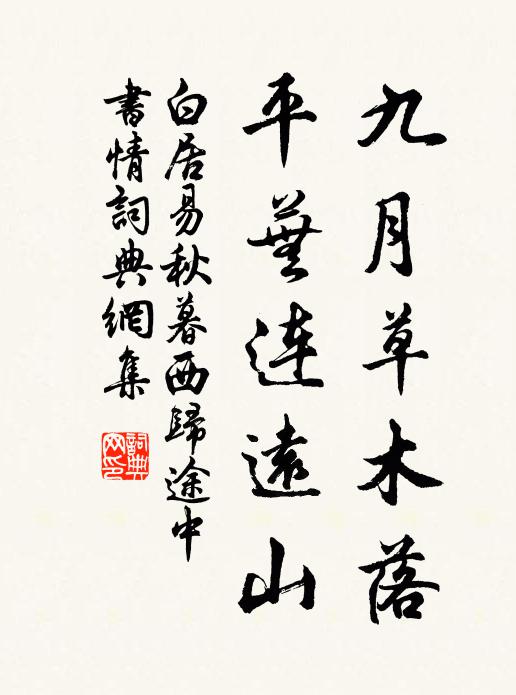 九月草木落
平蕪連遠山
白居易秋暮西歸途中
書情詞典網集
詞典网印